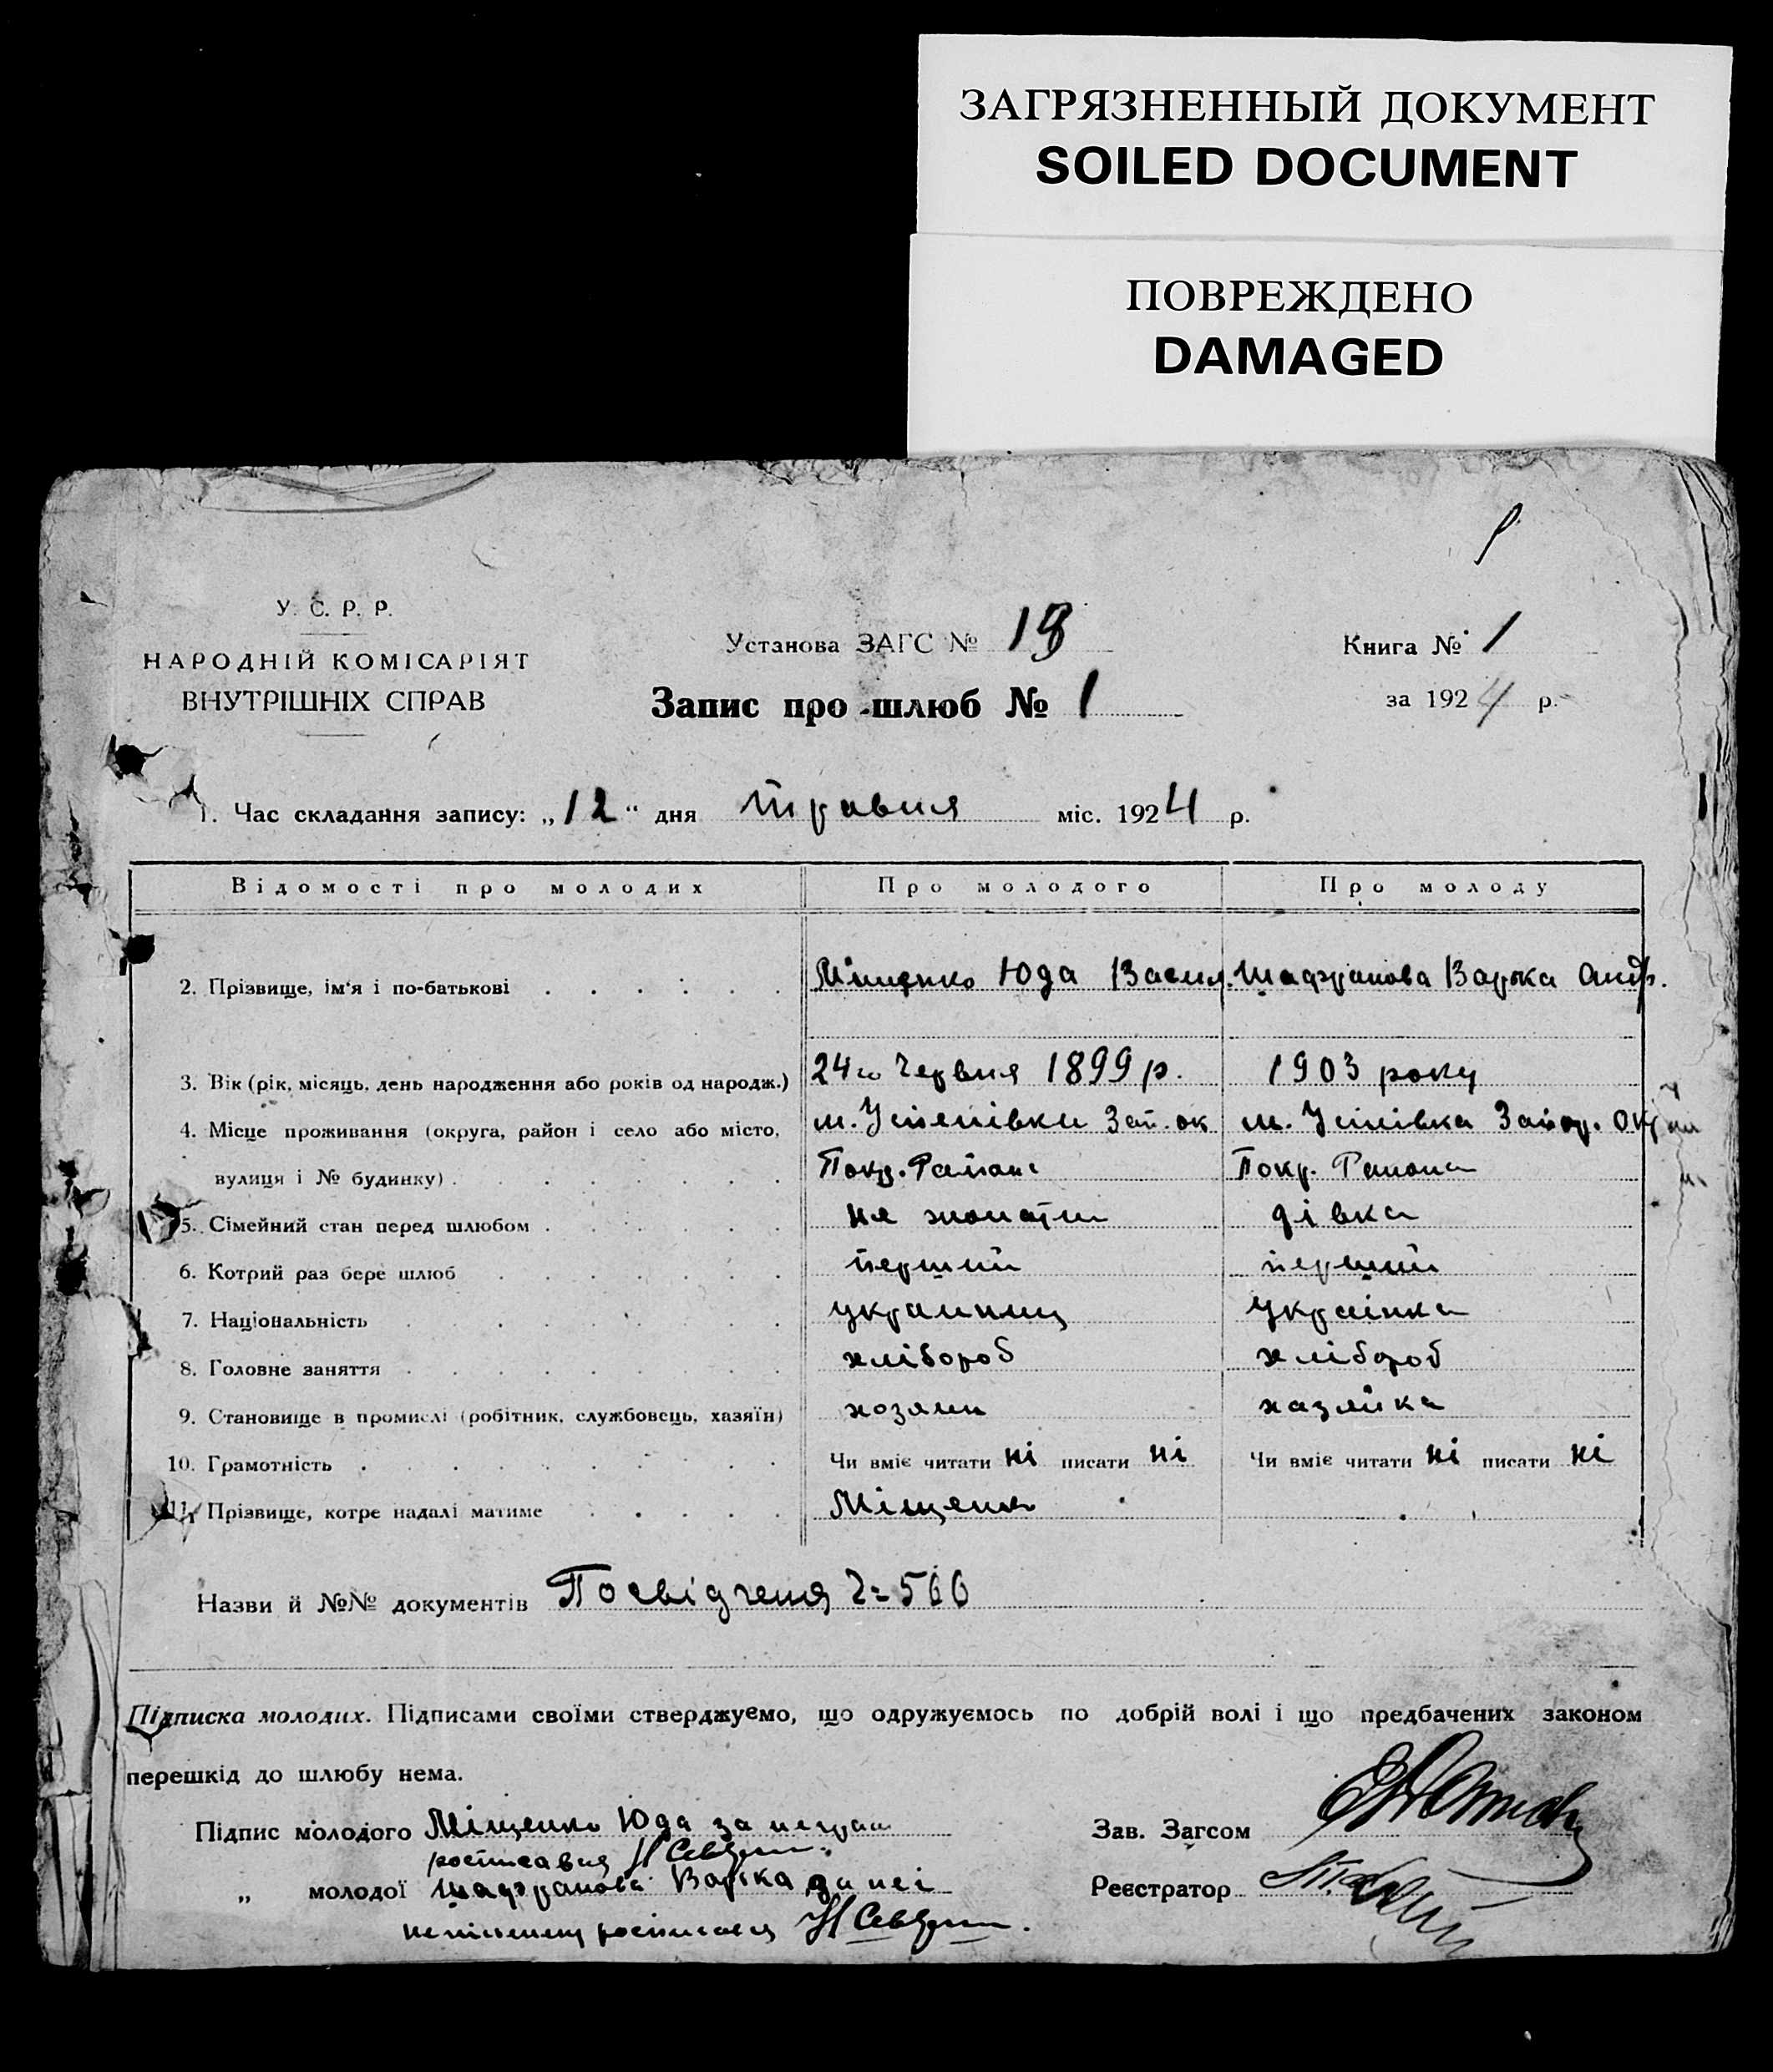 ЗАГРЯЗНЕННЫЙ ДОКУМЕНТ
SOILED DOCUMENT
ПОВРЕЖДЕНО
DAMAGED
У. С. Р. Р.
НАРОДНІЙ КОМІСАРІЯТ
ВНУТРІШНІХ СПРАВ
Установа ЗАГС № 18
Книга № 1
Запис про шлюб № 1
за 1924 р.
1. Час складання запису: „12“ дня травня міс. 1924 р.
Відомості про молодих Про молодого Про молоду
2. Прізвище, ім'я і по-батькові Міщенко Юда Васил. Шафранова Варка Андр.
3. Вік (рік, місяць, день народження або років од народж.) 24го Червня 1899 р. 1903 року
4. Місце проживання (округа, район і село або місто, м. Успенівки Зап. ок м. Успівка Запор. Окр
вулиця і № будинку) Покр. Района Покр. Района
5. Сімейний стан перед шлюбом не жонатий дівка
6. Котрий раз бере шлюб перший перший
7. Національність украинец Українка
8. Головне заняття хлібороб хлібороб
9. Становище в промислі (робітник, службовець, хазяїн) хозяин хазяйка
10. Грамотність Чи вміє читати ні писати ні Чи вміє читати ні писати ні
11. Прізвище, котре надалі матиме Міщенко
Назви й №№ документів Посвідченя 500
Підписка молодих. Підписами своїми стверджуємо, що одружуємось по добрій волі і що предбачених законом
перешкід до шлюбу нема.
Підпис молодого Міщенко Юда за неграм
Зав. Загсом
росписавця
„ молодої Шафранова Варка за неі
Реєстратор
неписьмену росписався